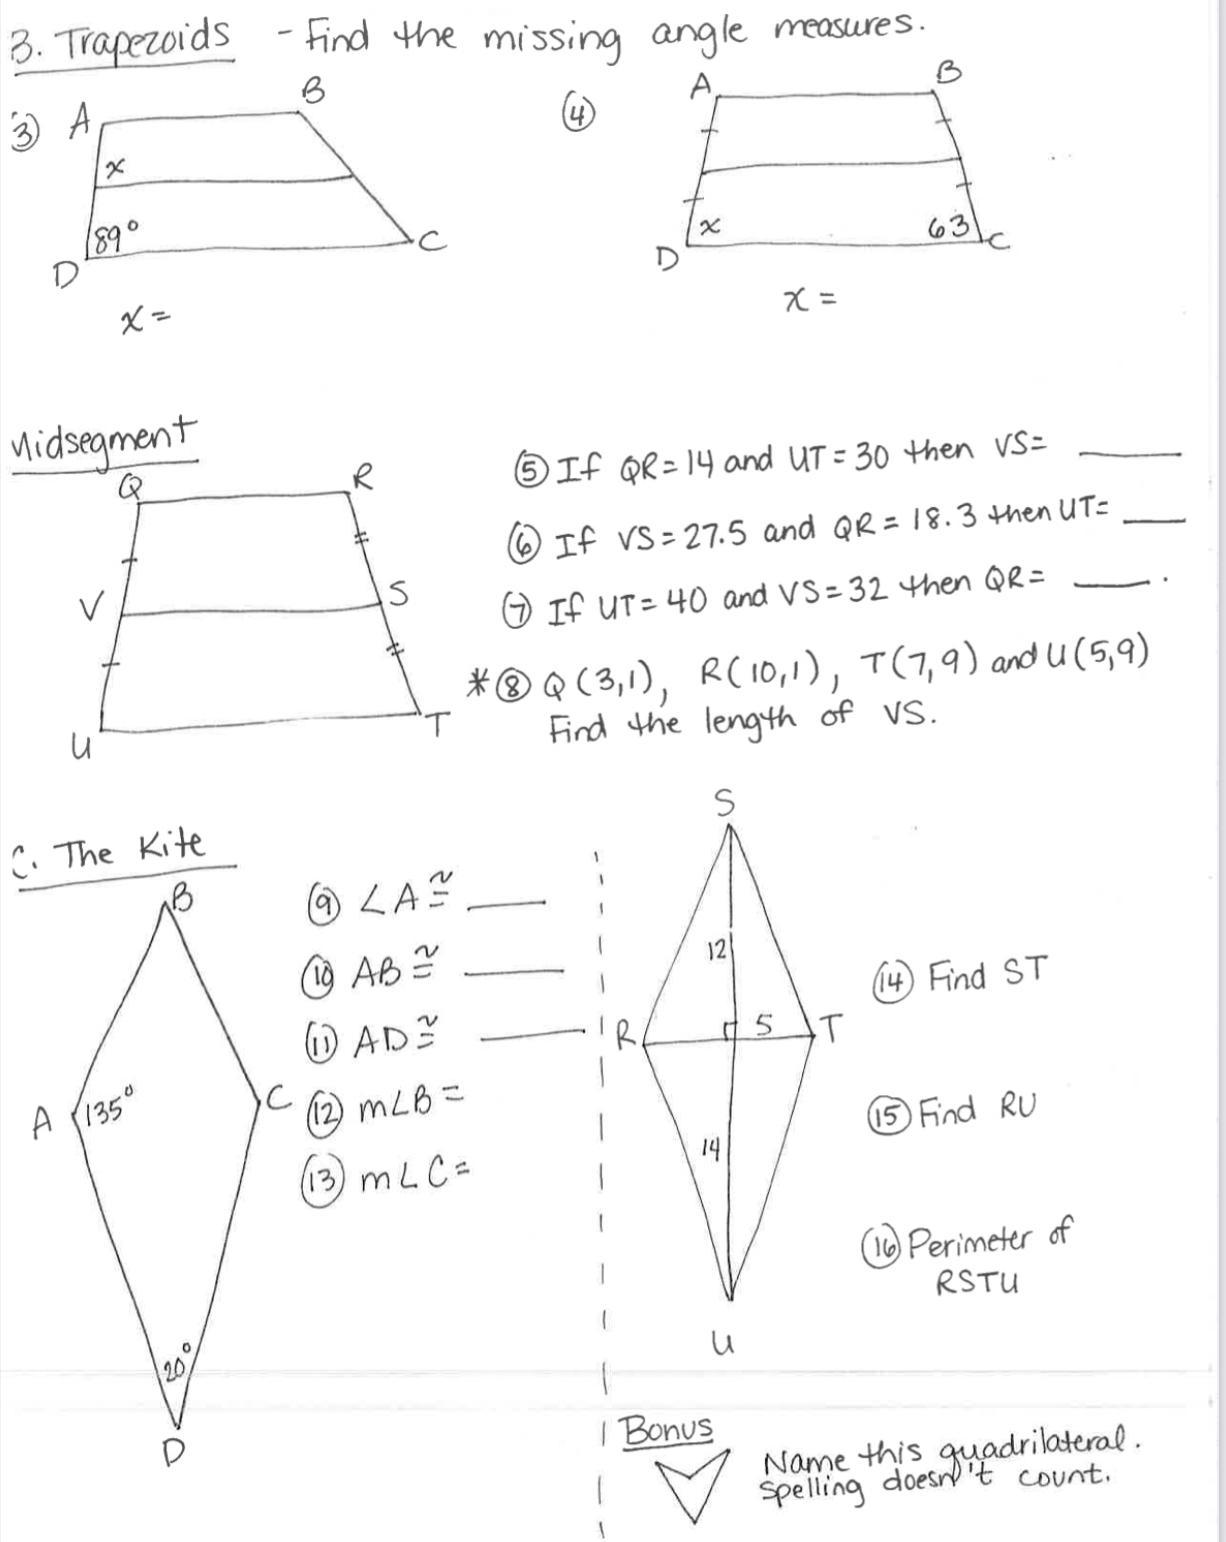 B. Trapezoids - Find the missing angle measures.
③ A B
x
89°
D C
x =
④ A B
x 63
D C
x =
Midsegment
Q R
V S
U T
⑤ If QR = 14 and UT = 30 then VS = ____
⑥ If VS = 27.5 and QR = 18.3 then UT = ____
⑦ If UT = 40 and VS = 32 then QR = ____.
*⑧ Q (3,1), R(10,1), T(7,9) and U(5,9)
Find the length of VS.
C. The Kite
B
A 135° C
20°
D
⑨ ∠A ≅ ____
⑩ AB ≅ ____
⑪ AD ≅ ____
⑫ m∠B =
⑬ m∠C =
S
12
R 5 T
14
U
⑭ Find ST
⑮ Find RU
⑯ Perimeter of
RSTU
Bonus
Name this quadrilateral.
Spelling doesn't count.